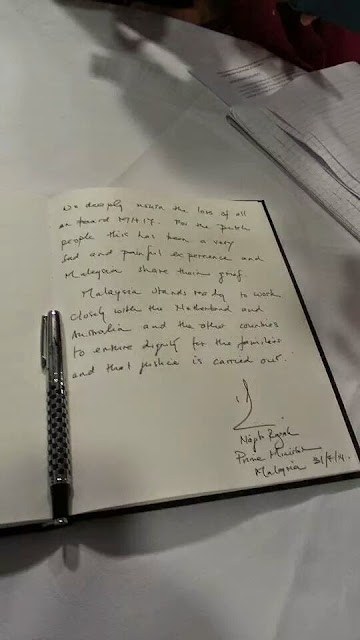 We deeply mourn the loss of all
on board MH17. For the Dutch
people this has been a very
sad and painful experience and
Malaysia share their grief.
Malaysia stands ready to work
closely with the Netherland and
Australia and the other countries
to ensure dignity for the families
and that justice is carried out.
Najib Razak
Prime Minister
Malaysia 31/7/14.